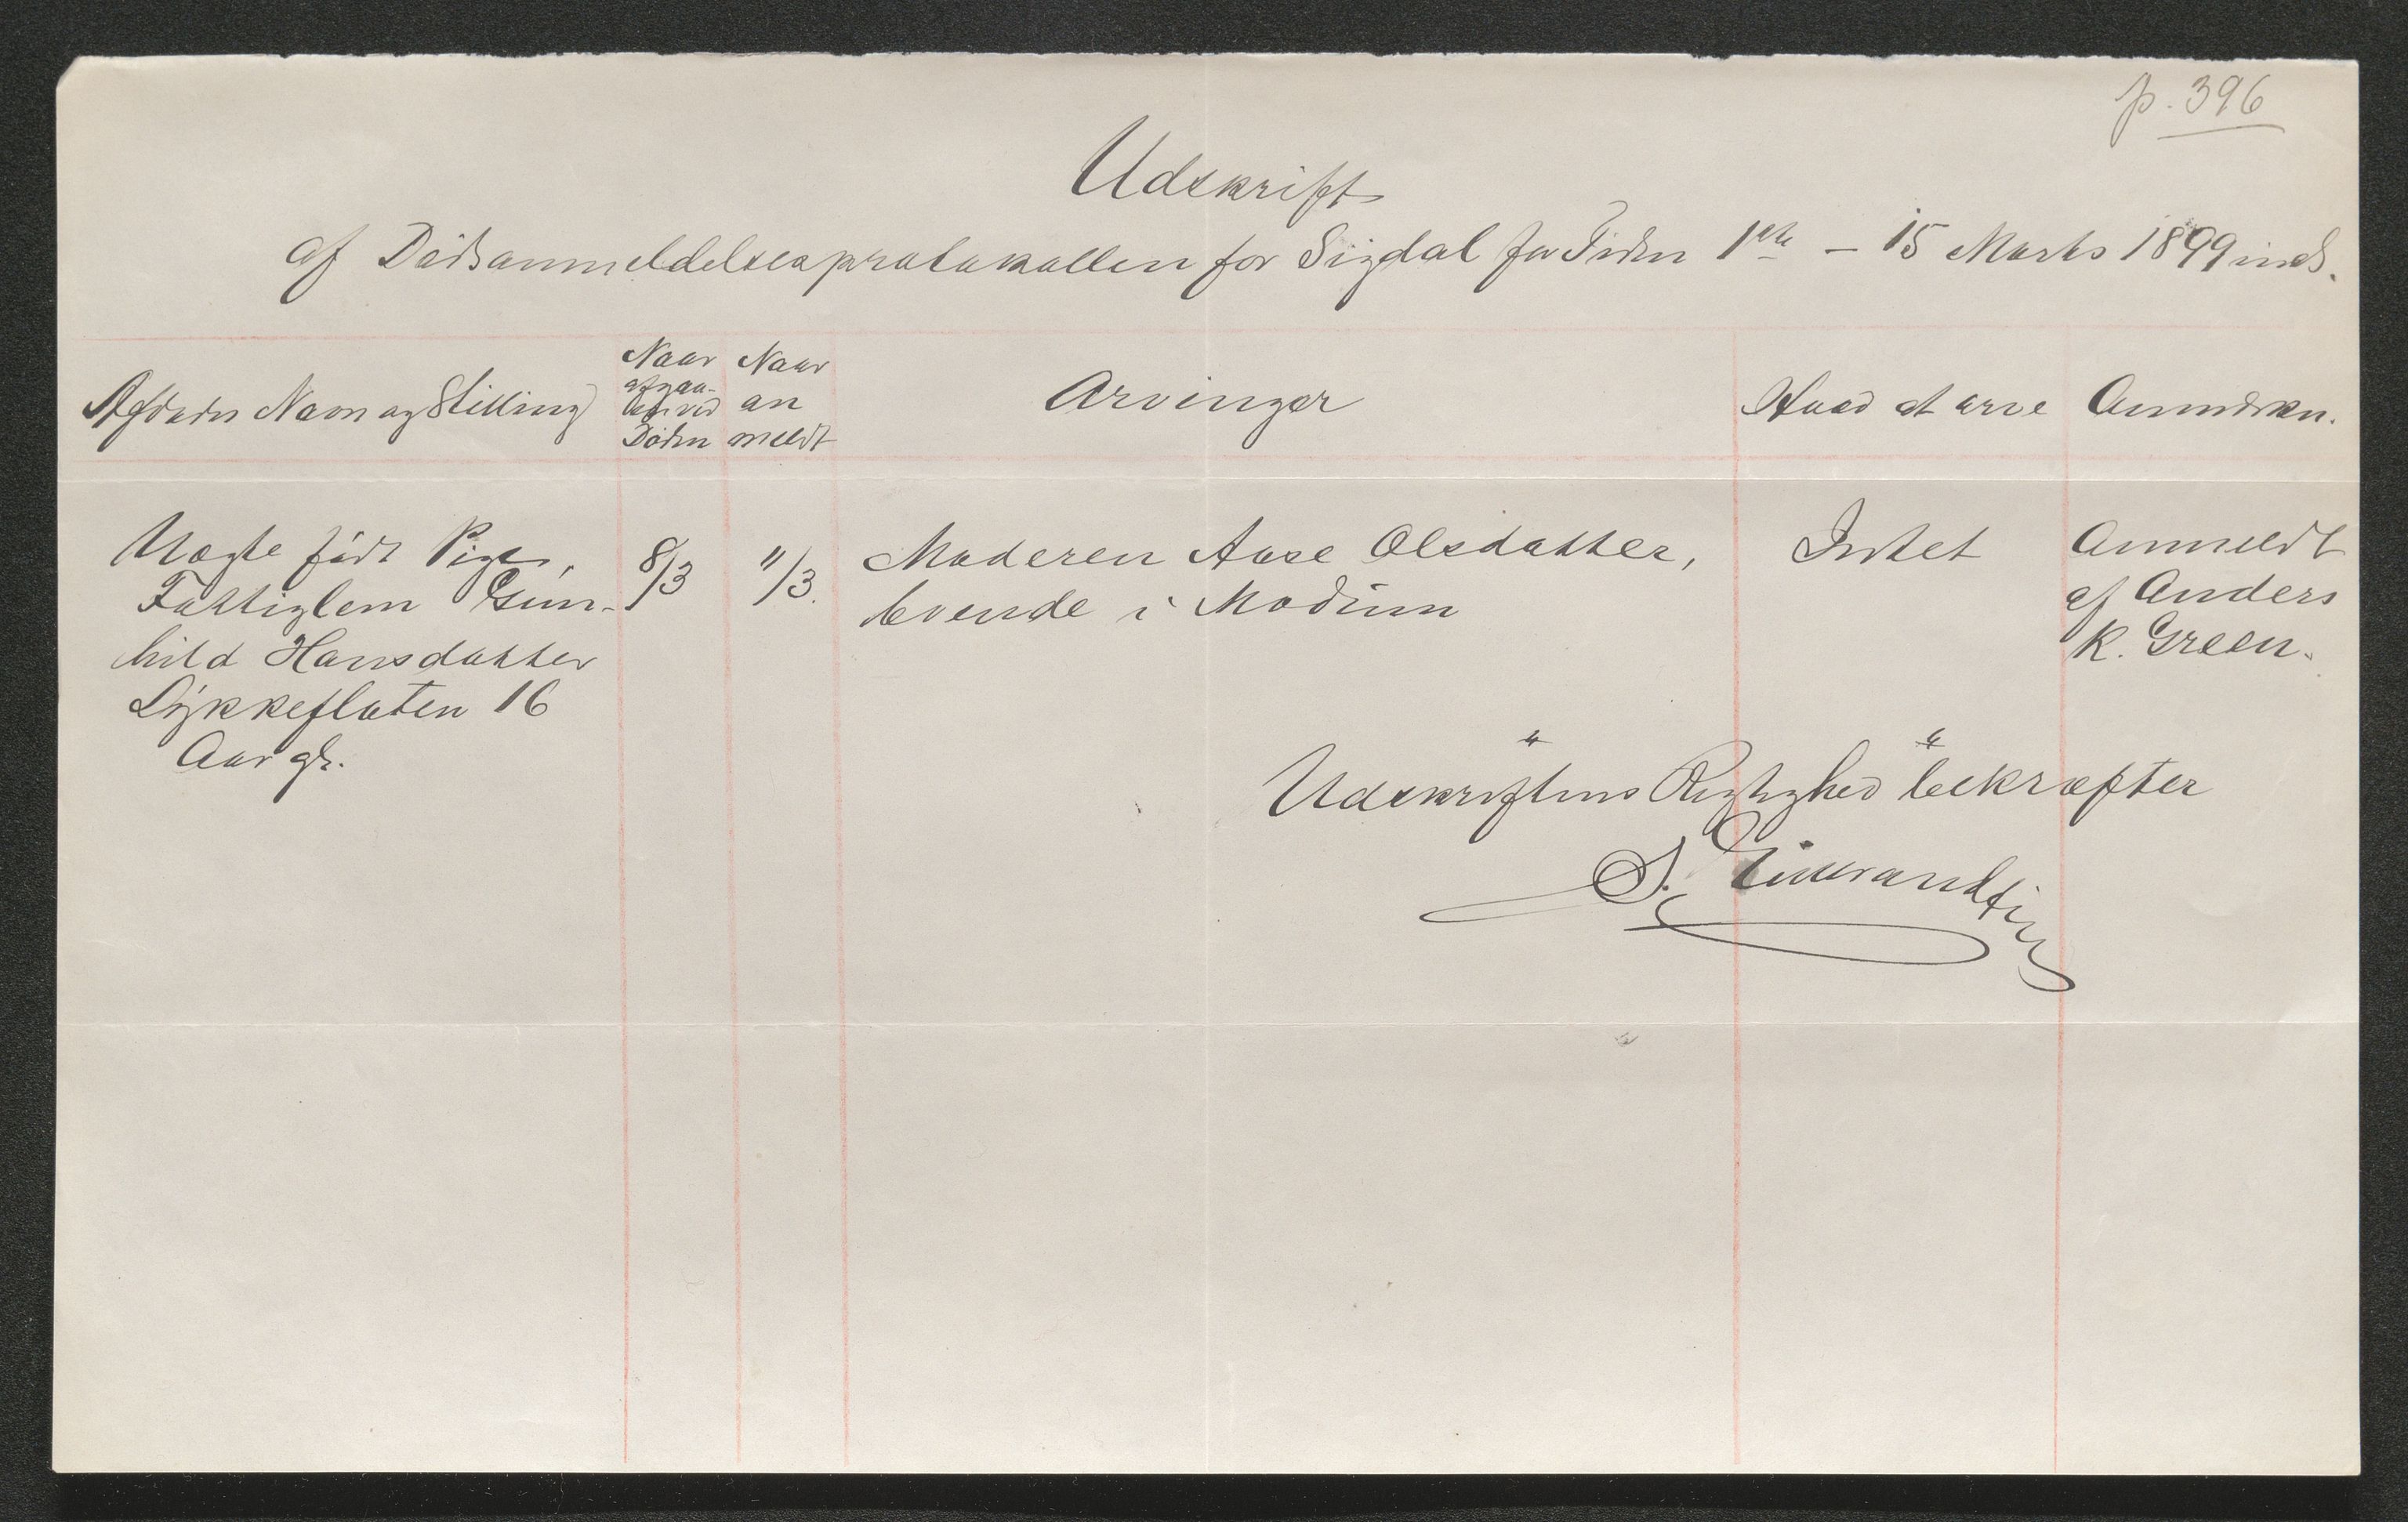 p. 396
Udskrift
af Dødsanmeldelsesprotokollen for Sigdal for Tiden 1ste – 15 Marts 1899 incl.
Afdødes Navn og Stilling
Naar
afgaa-
en ved
Døden
Naar
an
meldt
Arvinger
Hvad at arve
Anmærkn.
Uægte født Pige,
Fattiglem Gun-
hild Hansdatter
Lykkefladen 16
Aar gl.
8/3
11/3.
Moderen Aase Olsdatter,
boende i Modum
Intet
Anmeldt
af Anders
K. Green.
" "
Udskriftens Rigtighed bekræfter
S.